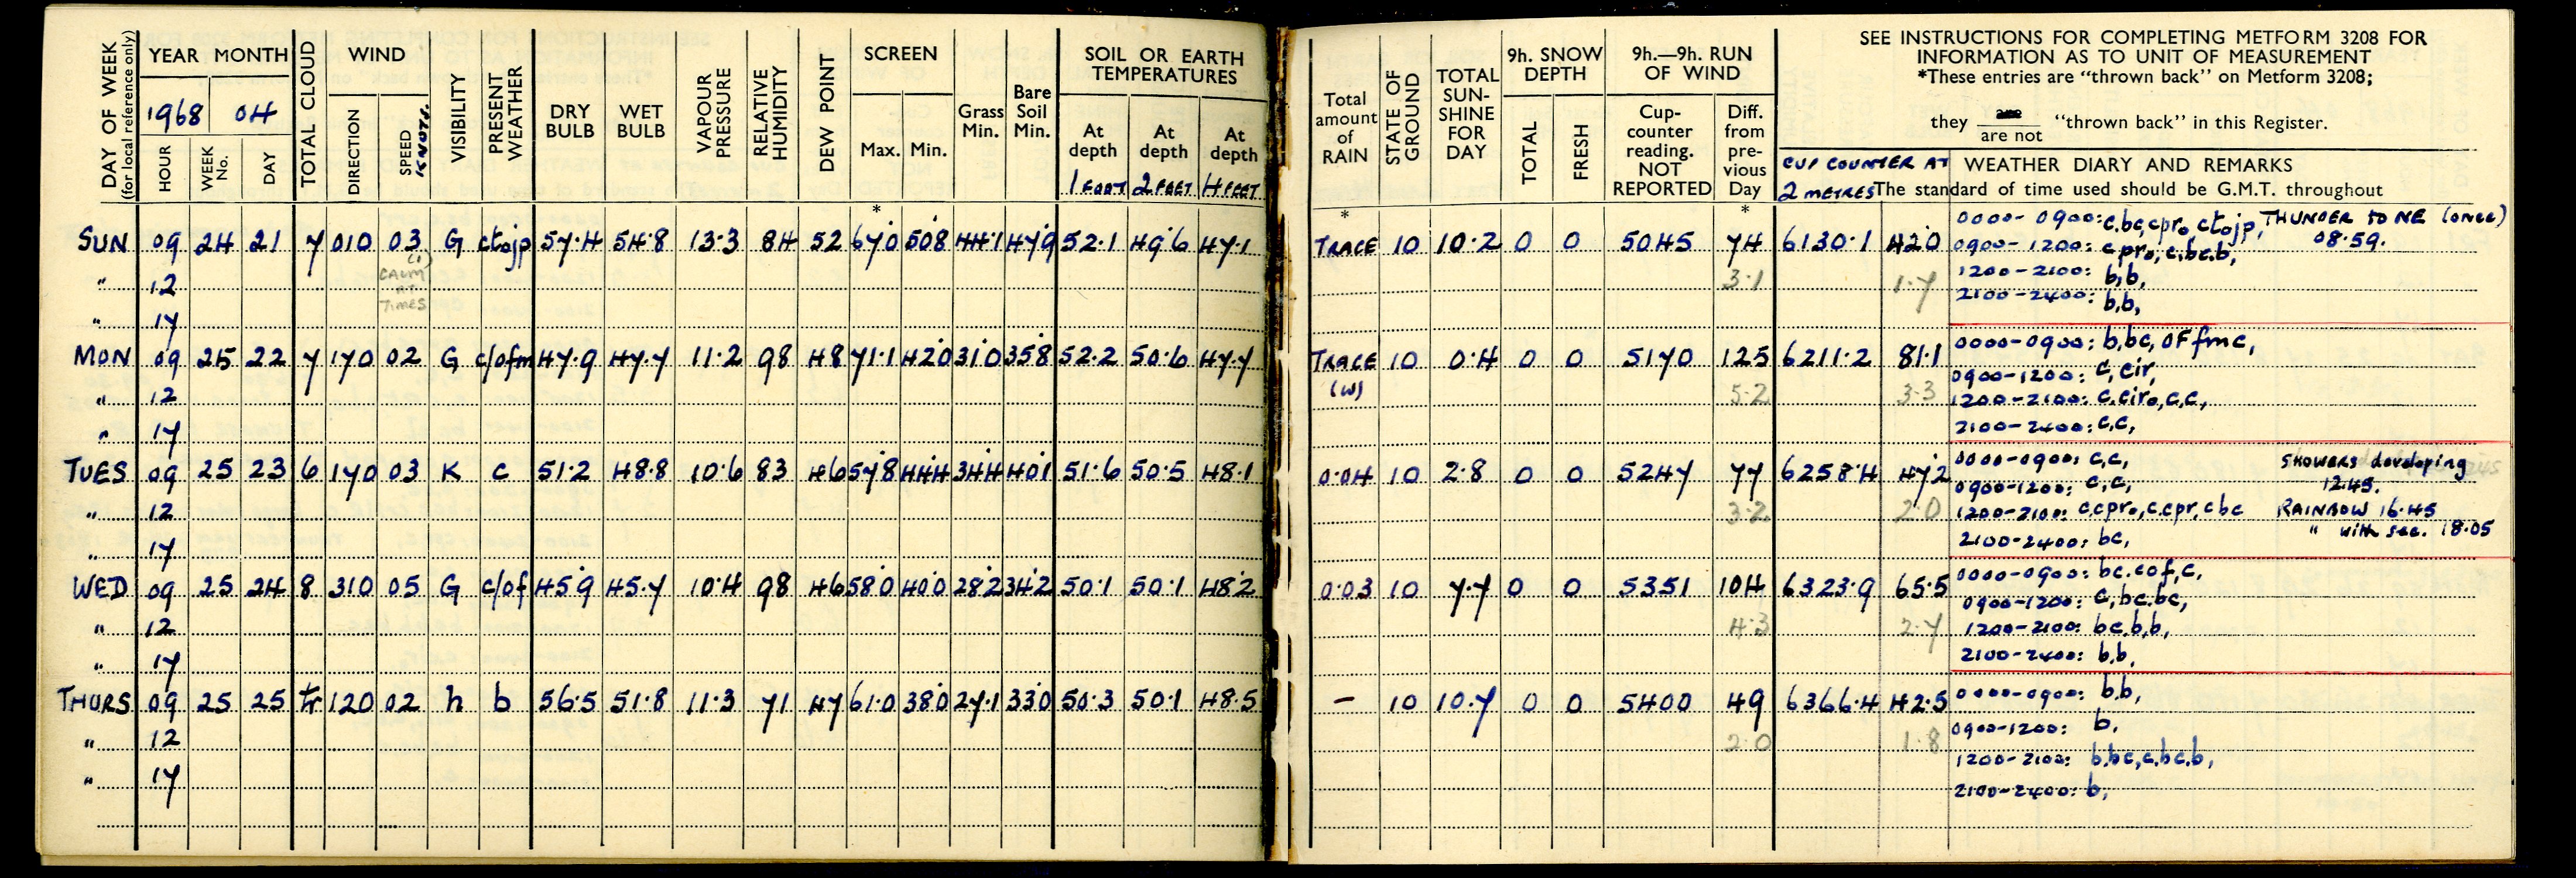 DAY OF WEEK
(for local reference only)
YEAR MONTH
1968 04
HOUR
WEEK No.
DAY
TOTAL CLOUD
WIND
DIRECTION
SPEED KNOTS.
VISIBILITY
PRESENT WEATHER
DRY BULB
WET BULB
VAPOUR PRESSURE
RELATIVE HUMIDITY
DEW POINT
SCREEN
Max. Min.
*
Grass Min.
Bare Soil Min.
SOIL OR EARTH
TEMPERATURES
At depth 1 FOOT
At depth 2 FEET
At depth 4 FEET
Total amount of RAIN
*
STATE OF GROUND
TOTAL SUN-SHINE FOR DAY
9h. SNOW DEPTH
TOTAL
FRESH
9h.—9h. RUN OF WIND
Cup-counter reading. NOT REPORTED
Diff. from pre-vious Day
*
SEE INSTRUCTIONS FOR COMPLETING METFORM 3208 FOR
INFORMATION AS TO UNIT OF MEASUREMENT
*These entries are "thrown back" on Metform 3208;
they are / are not "thrown back" in this Register.
CUP COUNTER AT 2 METRES
WEATHER DIARY AND REMARKS
The standard of time used should be G.M.T. throughout
SUN 09 24 21 7 010 03 G ctojp 57.4 54.8 13.3 84 52 67.0 50.8 44.1 47.9 52.1 49.6 47.1 TRACE 10 10.2 0 0 5045 74 6130.1 42.0
(1) CALM AT Times
3.1 1.7
0000-0900: c.bc,cpro,ctojp, THUNDER TO NE (once) 08.59.
0900-1200: cpro, c.bc.b,
" 12
1200-2100: b,b,
2100-2400: b,b,
" 17
MON 09 25 22 7 170 02 G c/ofm 47.9 47.7 11.2 98 48 71.1 42.0 31.0 35.8 52.2 50.6 47.7 TRACE (W) 10 0.4 0 0 5170 125 6211.2 81.1
5.2 3.3
0000-0900: b,bc, OFfmc,
0900-1200: c, cir,
" 12
1200-2100: c.ciro,c,c,
2100-2400: c,c,
" 17
TUES 09 25 23 6 170 03 K c 51.2 48.8 10.6 83 46 57.8 44.4 34.4 40.1 51.6 50.5 48.1 0.04 10 2.8 0 0 5247 77 6258.4 47.2
3.2 2.0
0000-0900: c,c, SHOWERS developing 12.45.
0900-1200: c,c,
" 12
1200-2100: c.cpro,c.cpr,cbc RAINBOW 16.45
" with sec. 18.05
2100-2400: bc,
" 17
WED 09 25 24 8 310 05 G c/of 45.9 45.7 10.4 98 46 58.0 40.0 28.2 34.2 50.1 50.1 48.2 0.03 10 7.7 0 0 5351 104 6323.9 65.5
4.3 2.7
0000-0900: bc.cof,c,
0900-1200: c,bc.bc,
" 12
1200-2100: bc.b,b,
2100-2400: b,b,
" 17
THURS 09 25 25 tr 120 02 h b 56.5 51.8 11.3 71 47 61.0 38.0 27.1 33.0 50.3 50.1 48.5 – 10 10.7 0 0 5400 49 6366.4 42.5
2.0 1.8
0000-0900: b,b,
0900-1200: b,
" 12
1200-2100: b.bc,c.bc.b,
" 17
2100-2400: b,